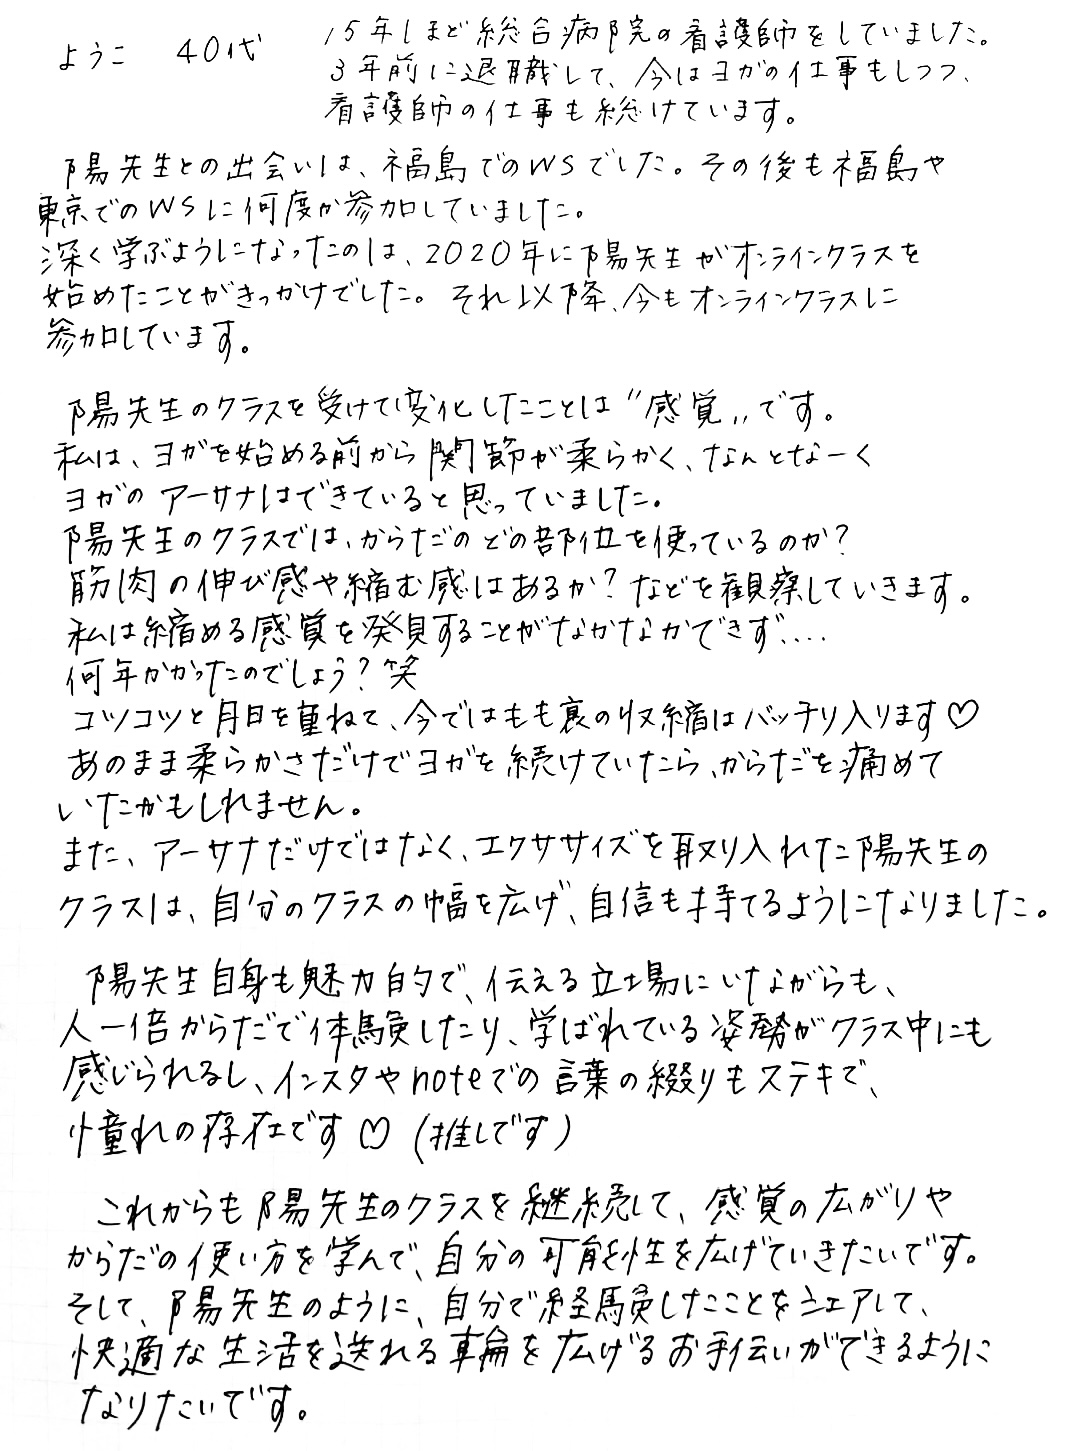 ようこ　40代
15年ほど総合病院の看護師をしていました。
3年前に退職して、今はヨガの仕事もしつつ、
看護師の仕事も続けています。
陽先生との出会いは、福島でのWSでした。その後も福島や
東京でのWSに何度か参加していました。
深く学ぶようになったのは、2020年に陽先生がオンラインクラスを
始めたことがきっかけでした。それ以降、今もオンラインクラスに
参加しています。
陽先生のクラスを受けて変化したことは"感覚"です。
私は、ヨガを始める前から関節が柔らかく、なんとなーく
ヨガのアーサナはできていると思っていました。
陽先生のクラスでは、からだのどの部位を使っているのか?
筋肉の伸び感や縮む感はあるか?などを観察していきます。
私は縮める感覚を発見することがなかなかできず....
何年かかったのでしょう?笑
コツコツと月日を重ねて、今ではもも裏の収縮はバッチリ入ります♡
あのまま柔らかさだけでヨガを続けていたら、からだを痛めて
いたかもしれません。
また、アーサナだけではなく、エクササイズを取り入れた陽先生の
クラスは、自分のクラスの幅を広げ、自信も持てるようになりました。
陽先生自身も魅力的で、伝える立場にいながらも、
人一倍からだで体験したり、学ばれている姿勢がクラス中にも
感じられるし、インスタやnoteでの言葉の綴りもステキで、
憧れの存在です♡(推しです)
これからも陽先生のクラスを継続して、感覚の広がりや
からだの使い方を学んで、自分の可能性を広げていきたいです。
そして、陽先生のように、自分で経験したことをシェアして、
快適な生活を送れる輪を広げるお手伝いができるように
なりたいです。